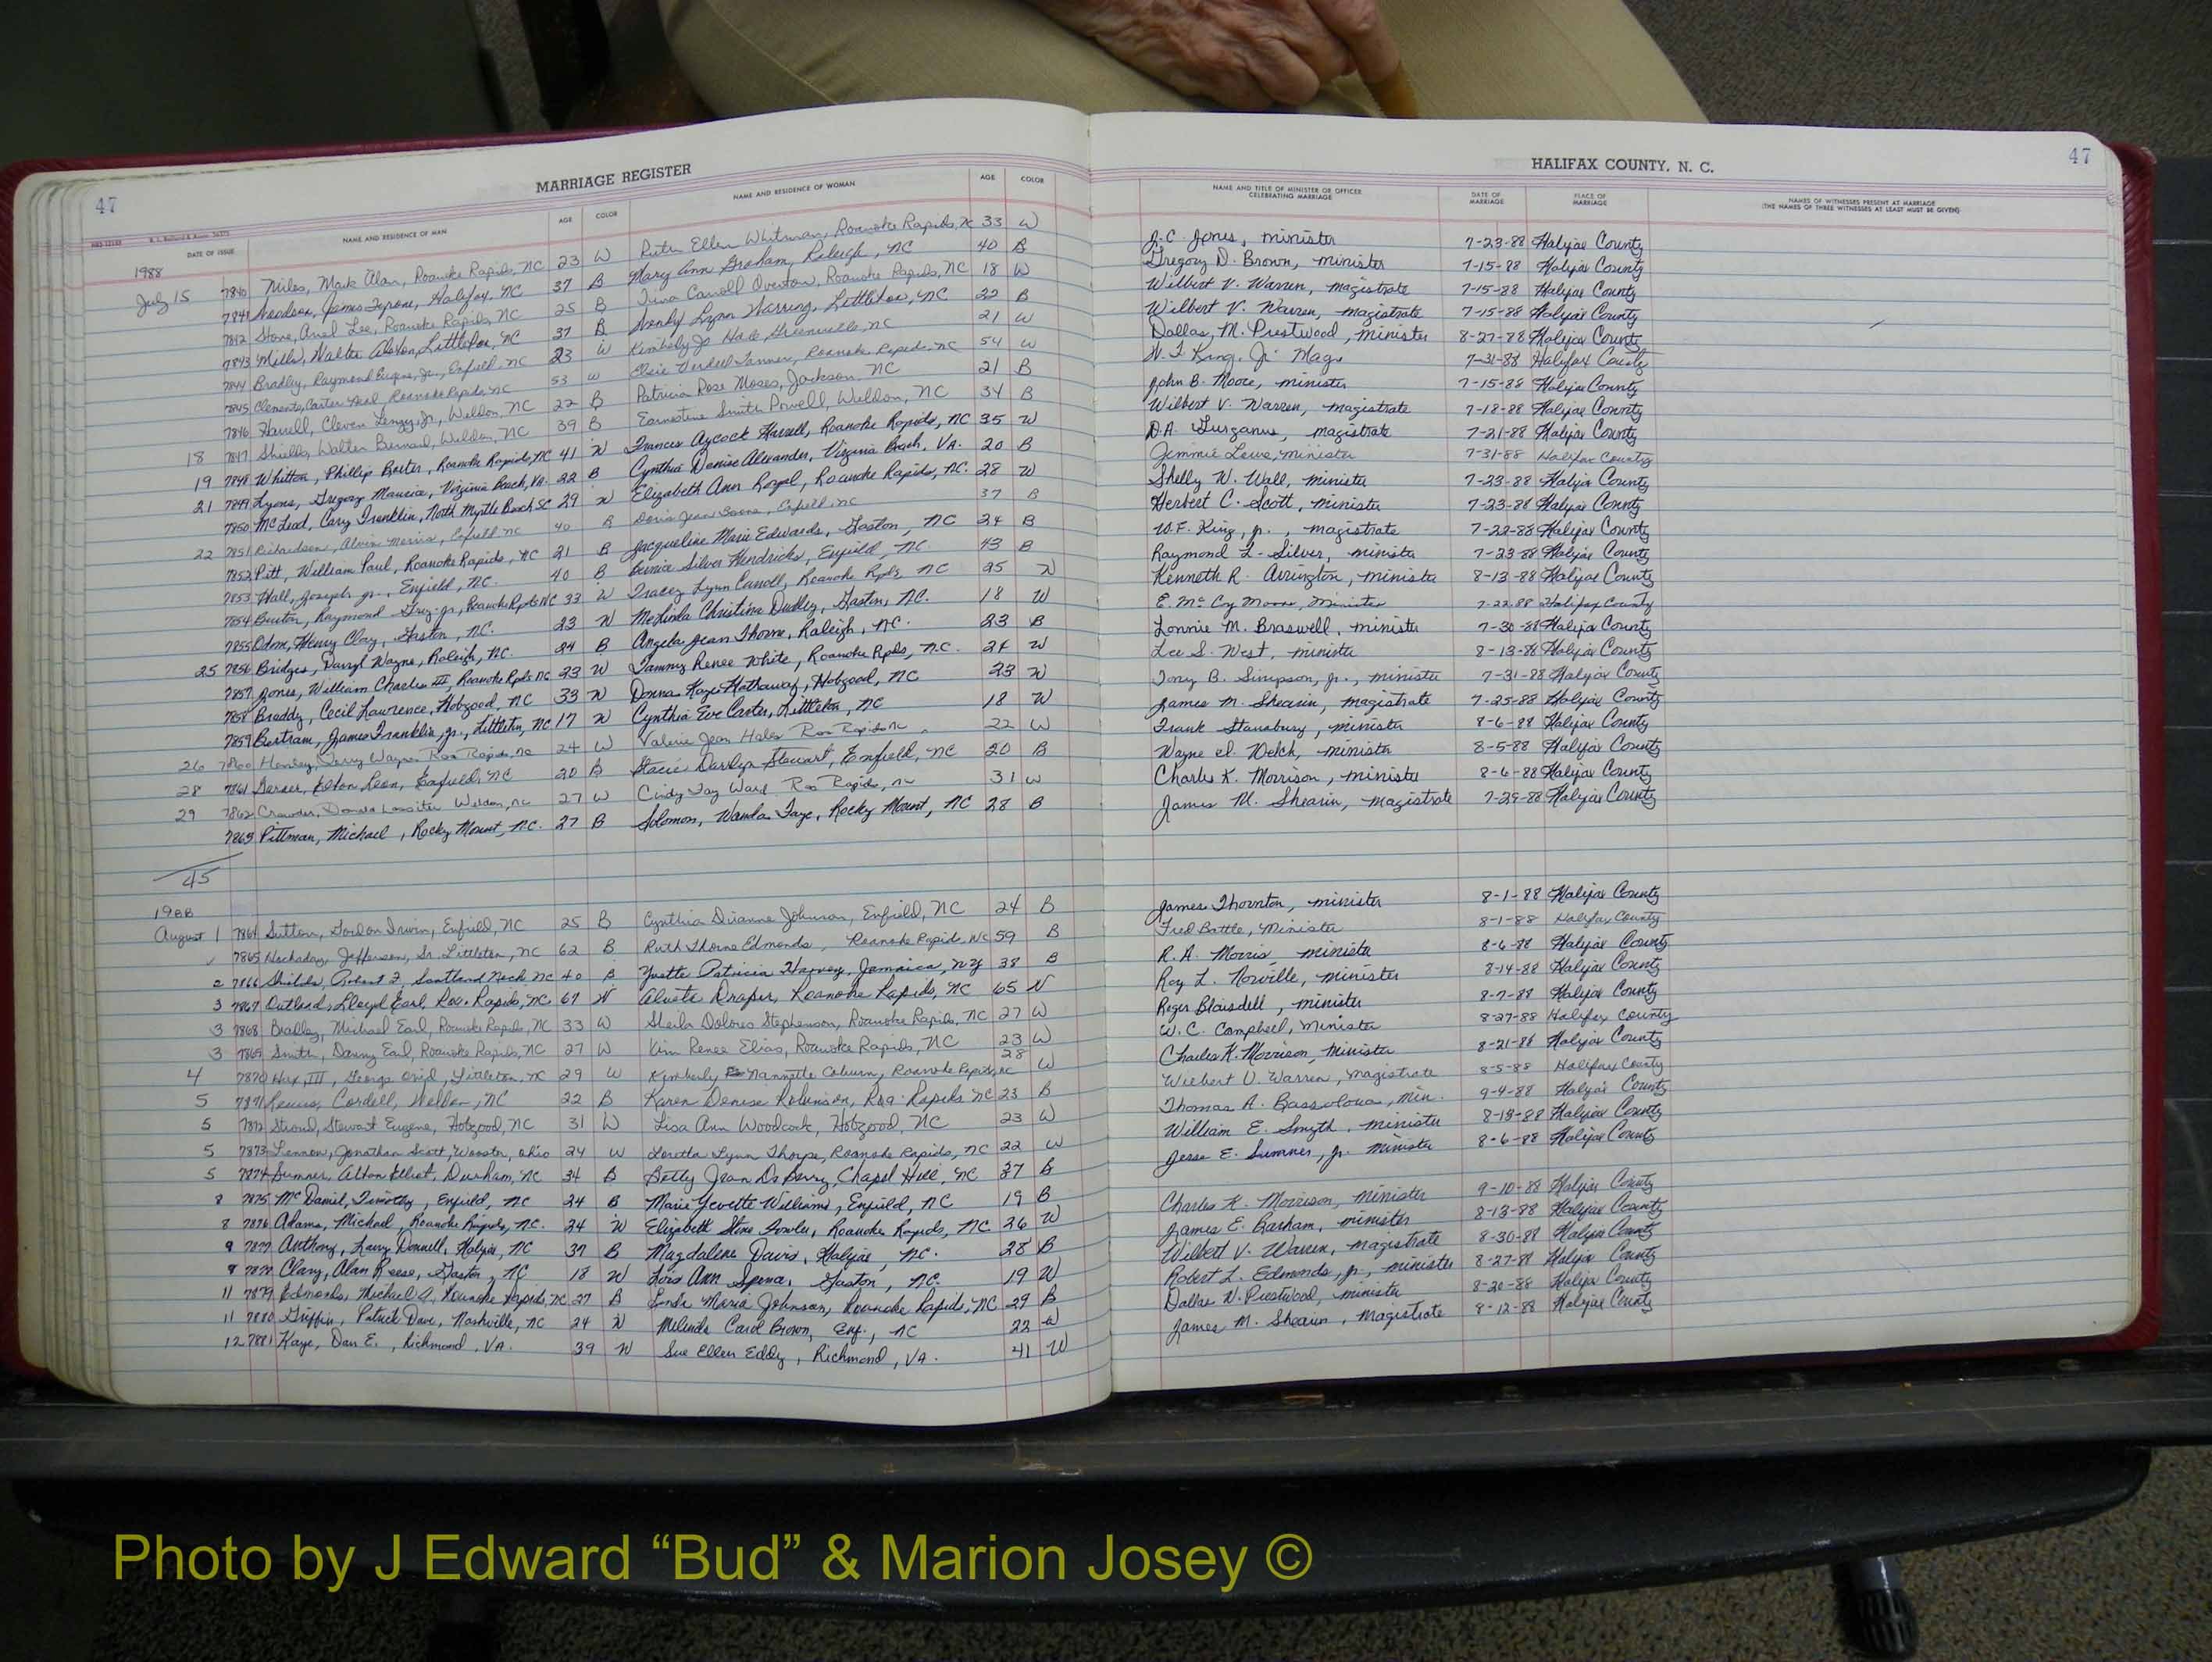 47 MARRIAGE REGISTER HALIFAX COUNTY, N. C. 47
DATE OF ISSUE NAME AND RESIDENCE OF MAN AGE COLOR NAME AND RESIDENCE OF WOMAN AGE COLOR NAME AND TITLE OF MINISTER OR OFFICER CELEBRATING MARRIAGE DATE OF MARRIAGE PLACE OF MARRIAGE NAMES OF WITNESSES PRESENT AT MARRIAGE (THE NAMES OF THREE WITNESSES AT LEAST MUST BE GIVEN)
1988
July 15 7840 Niles, Mark Alan, Roanoke Rapids, NC 23 W Ruth Ellen Whitman, Roanoke Rapids, NC 33 W J.C. Jones, minister 7-23-88 Halifax County
7841 James Tyrone, Halifax, NC 37 B Mary Ann Graham, Raleigh, NC 40 B Gregory D. Brown, minister 7-15-88 Halifax County
7842 Stone, Ariel Lee, Roanoke Rapids, NC 25 B Tina Carroll Overton, Roanoke Rapids, NC 18 W Wilbert V. Warren, magistrate 7-15-88 Halifax County
7843 Mills, Walter Alston, Littleton, NC 37 B Wendy Lynn Warring, Littleton, NC 22 B Wilbert V. Warren, magistrate 7-15-88 Halifax County
7844 Bradley, Raymond Eugene, Jr., Enfield, NC 23 W Kimberly Jo Hale, Greenville, NC 21 W Dallas M. Prestwood, minister 8-27-88 Halifax County
7845 Clements, Carter Neal Roanoke Rapids, NC 53 W Elsie Tanner, Roanoke Rapids, NC 54 W W. F. King, Jr. Mag. 7-31-88 Halifax County
7846 Harrell, Cleven Jr., Weldon, NC 22 B Patricia Rose Moses, Jackson, NC 21 B John B. Moore, minister 7-15-88 Halifax County
18 7847 Shields, Walter Bernard, Weldon, NC 39 B Earnestine Smith Powell, Weldon, NC 34 B Wilbert V. Warren, magistrate 7-18-88 Halifax County
19 7848 Whitton, Phillip Baxter, Roanoke Rapids, NC 41 W Frances Aycock Harrell, Roanoke Rapids, NC 35 W D.A. Gurganus, magistrate 7-21-88 Halifax County
21 7849 Lyons, Gregory Maurice, Virginia Beach, VA. 22 B Cynthia Denise Alexander, Virginia Beach, VA. 20 B Jimmie Lewis, Minister 7-31-88 Halifax County
7850 McLeod, Cary Franklin, North Myrtle Beach SC 29 W Elizabeth Ann Royal, Roanoke Rapids, NC. 28 W Shelly W. Wall, minister 7-23-88 Halifax County
22 7851 Richardson, Alvin Morris, Enfield NC 40 B Doris Jean Boone, Enfield NC 37 B Herbert C. Scott, minister 7-23-88 Halifax County
7852 Pitt, William Paul, Roanoke Rapids, NC 21 B Jacqueline Marie Edwards, Gaston, NC 24 B W.F. King, Jr., magistrate 7-22-88 Halifax County
7853 Hall, Joseph Jr., Enfield, NC. 40 B Silver Hendricks, Enfield, NC. 43 B Raymond L. Silver, minister 7-23-88 Halifax County
7854 Burton, Raymond Jr., Roanoke Rpds NC 33 W Tracey Lynn Carroll, Roanoke Rpds NC 25 W Kenneth R. Arrington, minister 8-13-88 Halifax County
7855 Odom, Henry Clay, Gaston, NC. 23 W Melinda Christina Dudley, Gaston, NC. 18 W E. McCoy Moore, Minister 7-22-88 Halifax County
25 7856 Bridges, Darryl Wayne, Raleigh, NC. 24 B Angela Jean Thorne, Raleigh, NC. 23 B Lonnie M. Braswell, minister 7-30-88 Halifax County
7857 Jones, William Charles III, Roanoke Rpds NC 23 W Tammy Renee White, Roanoke Rpds, NC. 24 W Lee S. West, minister 8-13-88 Halifax County
7858 Braddy, Cecil Lawrence, Hobgood, NC 33 W Donna Kaye Hathaway, Hobgood, NC 23 W Tony B. Simpson, Jr., minister 7-31-88 Halifax County
7859 Bertram, James Franklin, Jr., Littleton, NC 17 W Cynthia Eve Carter, Littleton, NC 18 W James M. Shearin, magistrate 7-25-88 Halifax County
26 7860 Wayne Roa Rapids, NC 24 W Valerie Jean Hales Roa Rapids NC 22 W Frank Stansbury, minister 8-6-88 Halifax County
28 7861 Elton Leon, Enfield, NC 20 B Stacie Darilyn Stewart, Enfield, NC 20 B Wayne D. Welch, minister 8-5-88 Halifax County
29 7862 Crowder, Donald Lassiter Weldon, NC 27 W Cindy Fay Ward Roa Rapids, NC 31 W Charles K. Morrison, minister 8-6-88 Halifax County
7863 Pittman, Michael, Rocky Mount, NC. 27 B Solomon, Wanda Faye, Rocky Mount, NC 28 B James M. Shearin, magistrate 7-29-88 Halifax County
45
1988
August 1 7864 Sutton, Gordon Irwin, Enfield, NC 25 B Cynthia Dianne Johnson, Enfield, NC 24 B James Thornton, minister 8-1-88 Halifax County
7865 Hockaday, Jefferson, Sr. Littleton, NC 62 B Ruth Thorne Edmonds, Roanoke Rapids, NC 59 B Fred Battle, Minister 8-1-88 Halifax County
2 7866 Shields, Robert Scotland Neck NC 40 B Yvette Patricia Harvey, Jamaica, NY 38 B R. A. Morris, minister 8-6-88 Halifax County
3 7867 Outland, Lloyd Earl, Roa. Rapids, NC 67 W Draper, Roanoke Rapids, NC 65 W Roy L. Norville, minister 8-14-88 Halifax County
3 7868 Bradley, Michael Earl, Roanoke Rapids, NC 33 W Sheila Dolores Stephenson, Roanoke Rapids, NC 27 W Roger Blaisdell, minister 8-7-88 Halifax County
3 7869 Smith, Danny Earl, Roanoke Rapids, NC 27 W Kim Renee Elias, Roanoke Rapids, NC 23 W W. C. Campbell, Minister 8-27-88 Halifax County
4 7870 Hux, III, George Littleton, NC 29 W Kimberly Nannette Coburn, Roanoke Rapids, NC 28 W Charles K. Morrison, minister 8-21-88 Halifax County
5 7871 Cordell, Weldon, NC 22 B Karen Denise Robinson, Roa. Rapids NC 23 B Wilbert V. Warren, magistrate 8-5-88 Halifax County
5 7872 Stroud, Stewart Eugene, Hobgood, NC 31 W Lisa Ann Woodcock, Hobgood, NC 23 W Thomas A. Min. 9-4-88 Halifax County
5 7873 Lennon, Jonathan Scott, Wooster, Ohio 24 W Loretta Lynn Thorpe, Roanoke Rapids, NC 22 W William E. Smyth, minister 8-13-88 Halifax County
5 7874 Sumner, Alton Elliot, Durham, NC 34 B Betty Jean DeBerry, Chapel Hill, NC 37 B Jesse E. Sumner, Jr. minister 8-6-88 Halifax County
8 7875 McDaniel, Timothy, Enfield, NC 24 B Marie Yevette Williams, Enfield, NC 19 B
8 7876 Adams, Michael, Roanoke Rapids, NC. 24 W Elizabeth Stone Fowler, Roanoke Rapids, NC 26 W Charles K. Morrison, minister 9-10-88 Halifax County
9 7877 Anthony, Larry Donnell, Halifax, NC 37 B Magdalene Davis, Halifax, NC. 28 B James E. Barham, minister 8-13-88 Halifax County
9 7878 Clary, Alan Reese, Gaston, NC 18 W Lois Ann Spence, Gaston, NC. 19 W Wilbert V. Warren, magistrate 8-30-88 Halifax County
11 7879 Edmonds, Michael A, Roanoke Rapids, NC 27 B Linda Maria Johnson, Roanoke Rapids, NC 29 B Robert L. Edmonds, Jr., minister 8-27-88 Halifax County
11 7880 Griffin, Patrick Dave, Nashville, NC 24 W Melinda Carol Brown, Enf., NC 22 W Dallas W. Prestwood, minister 8-20-88 Halifax County
12 7881 Kaye, Dan E., Richmond, VA. 39 W Sue Ellen Eddy, Richmond, VA. 41 W James M. Shearin, magistrate 8-12-88 Halifax County
Photo by J Edward “Bud” & Marion Josey ©